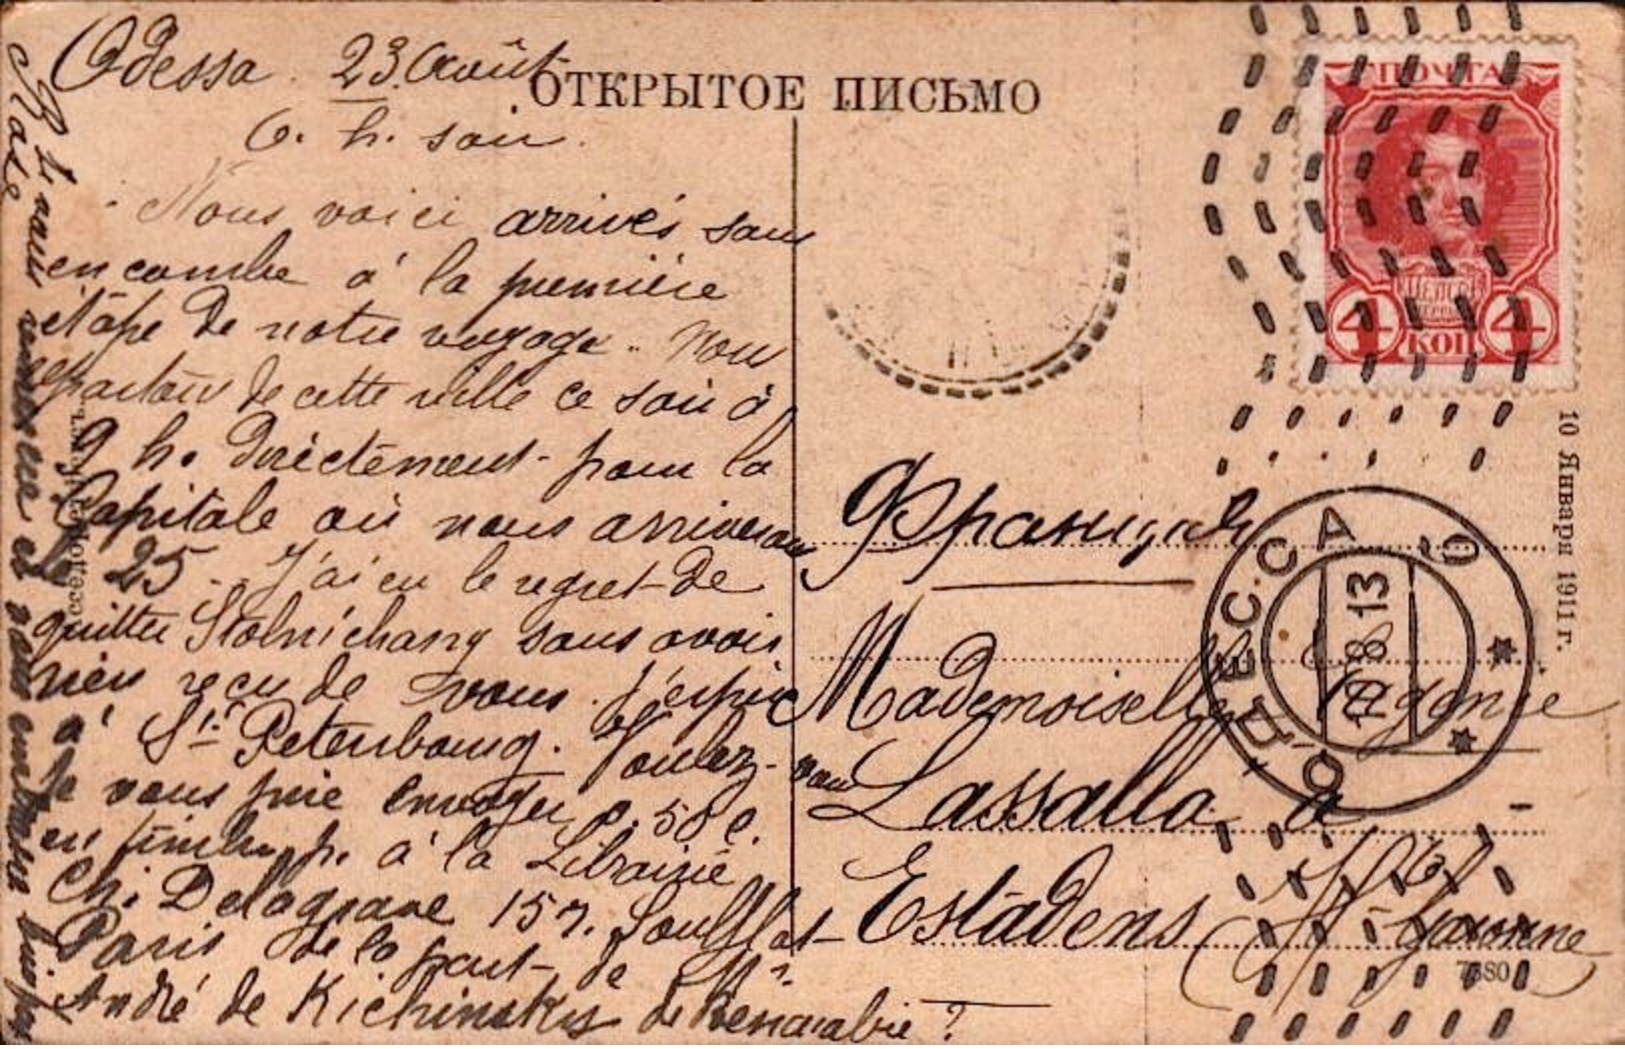 Odessa. 23. Août
6. h. soir.
Nous voici arrivés sans
encombe à la première
étape de notre voyage. Nous
repartons de cette ville ce soir à
9 h. directement pour la
Capitale où nous arriverons
le 25. J'ai eu le regret de
quitter Stolnichany sans avoir
rien reçu de vous. J'espère
à St. Petersbourg. Voulez-vous
je vous prie envoyer 0.50 c.
en timb. p. à la Librairie
Ch. Delagrave 15 r. Soufflot
Paris de la part de Mr.
André de Kichinsky de Bessarabie?
ОТКРЫТОЕ ПИСЬМО
ПОЧТА
4 КОП 4
10 Января 1911 г.
Франція
ОДЕССА
10.8.13
Mademoiselle
Lassalle à
Estadens
Hte Garonne